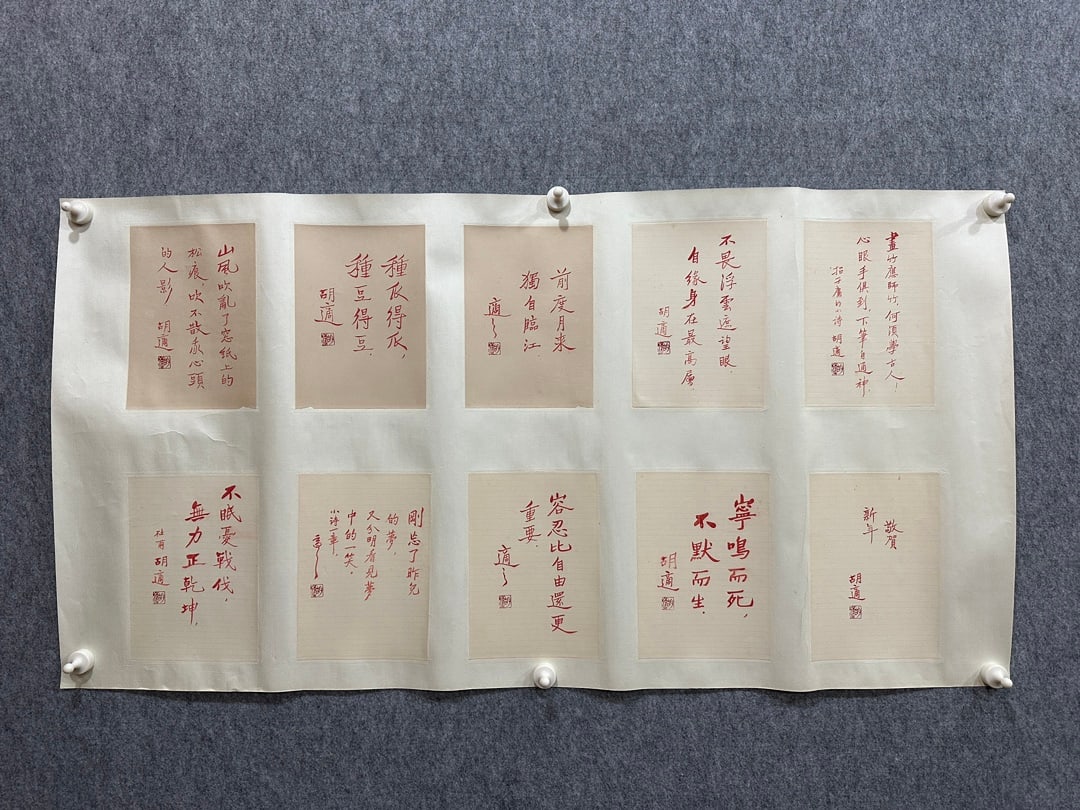 畫竹應師竹,何須學古人,
心眼手俱到,下筆自通神。
招子庸的小诗 胡適
不畏浮雲遮望眼,
自緣身在最高層。
胡適
前度月来
獨自臨江。
適之
種瓜得瓜,
種豆得豆。
胡適
山風吹亂了窓紙上的
松痕,吹不散我心頭
的人影 胡適
敬賀
新年
胡適
寧鳴而死,
不默而生。
胡適
容忍比自由還更
重要。
適之
剛忘了昨兒
的夢,
又分明看見夢
中的一笑。
小诗一章,
適之
不眠憂戰伐,
無力正乾坤。
杜甫 胡適